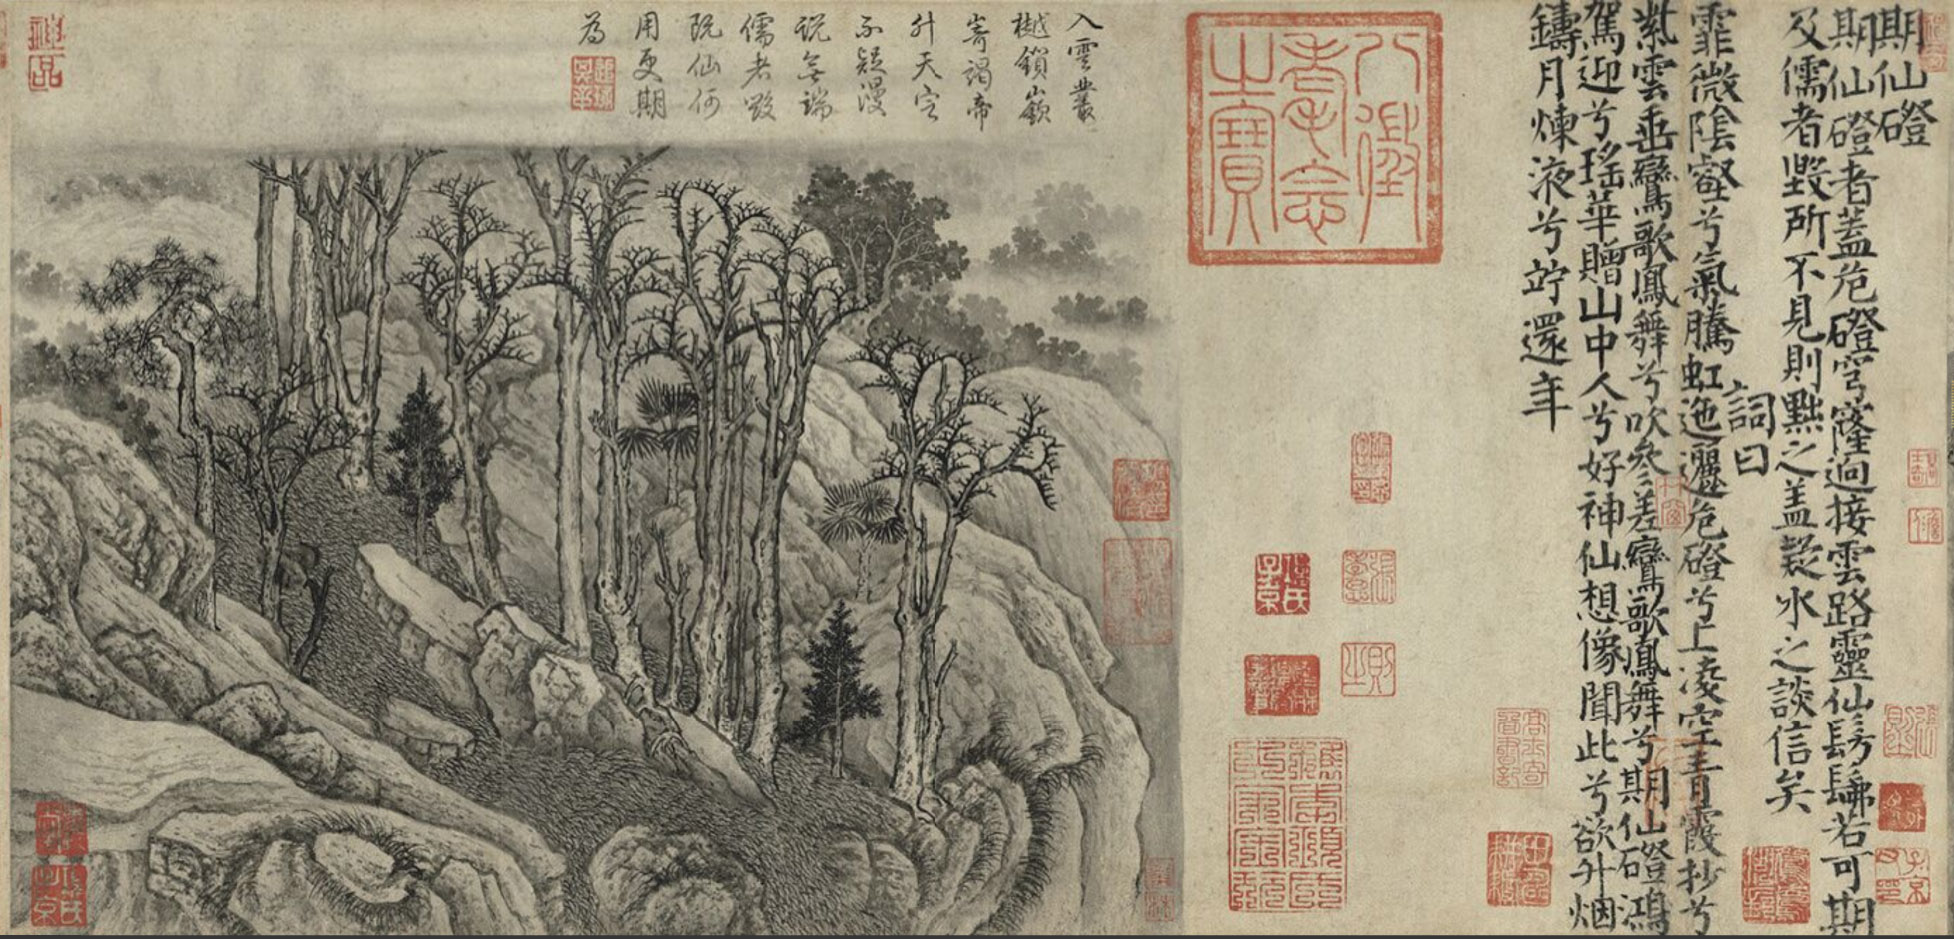 期仙磴
期仙磴者蓋危磴穹窿迥接雲路靈仙髣髴若可期
及儒者毀所不見則黜之蓋疑水之談信矣
詞曰
霏微陰壑兮氣騰虹迤邐危磴兮上凌空青霞杪兮
紫雲垂鸞歌鳳舞兮吹參差鸞歌鳳舞兮期仙磴鴻
駕迎兮瑤華贈山中人兮好神仙想像聞此兮欲升烟
鑄月煉液兮竚還年
八徵
耄念
之寶
入雲叢
樾鎖嶔
崎謁帝
升天定
不疑漫
說無端
儒者毀
既仙何
用更期
為
神品
項氏
子京